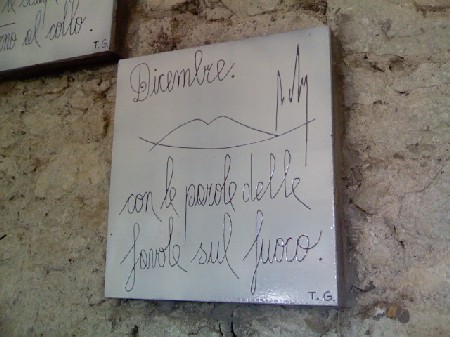 no al sotto.
T.G.
Dicembre.
con le parole delle
favole sul fuoco.
T.G.